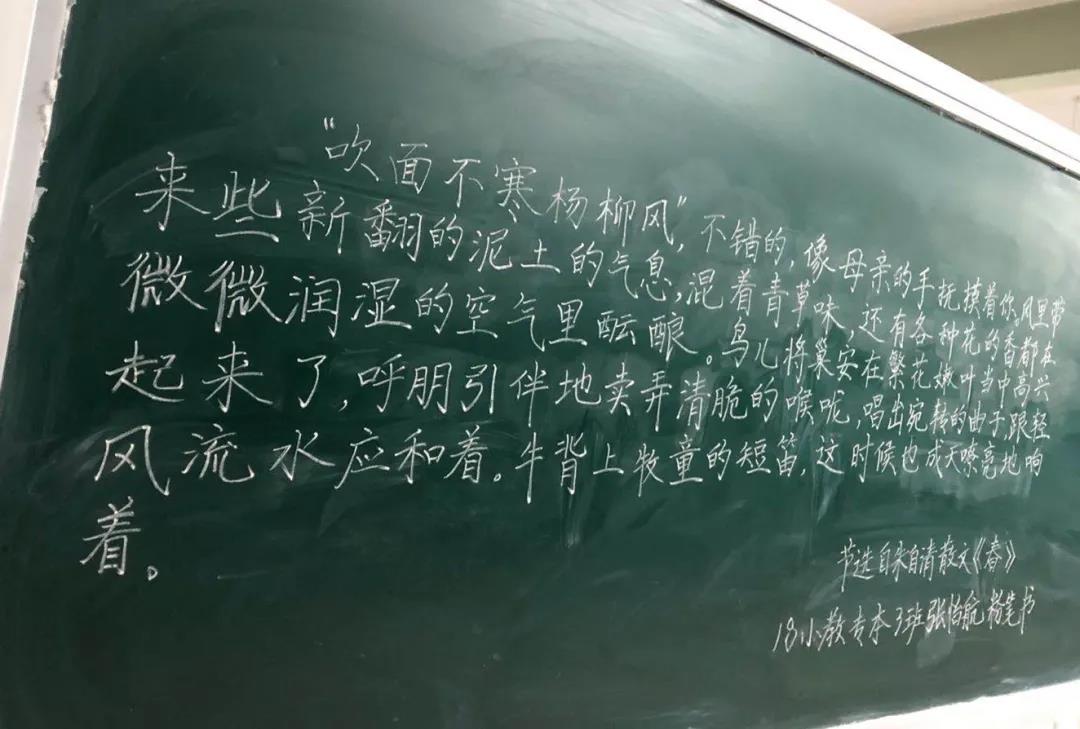 “吹面不寒杨柳风”,不错的,像母亲的手抚摸着你。风里带
来些新翻的泥土的气息,混着青草味,还有各种花的香都在
微微润湿的空气里酝酿。鸟儿将巢安在繁花嫩叶当中高兴
起来了,呼朋引伴地卖弄清脆的喉咙,唱出宛转的曲子,跟轻
风流水应和着。牛背上牧童的短笛,这时候也成天嘹亮地响
着。
节选自朱自清散文《春》
18小教专本3班张怡航粉笔书